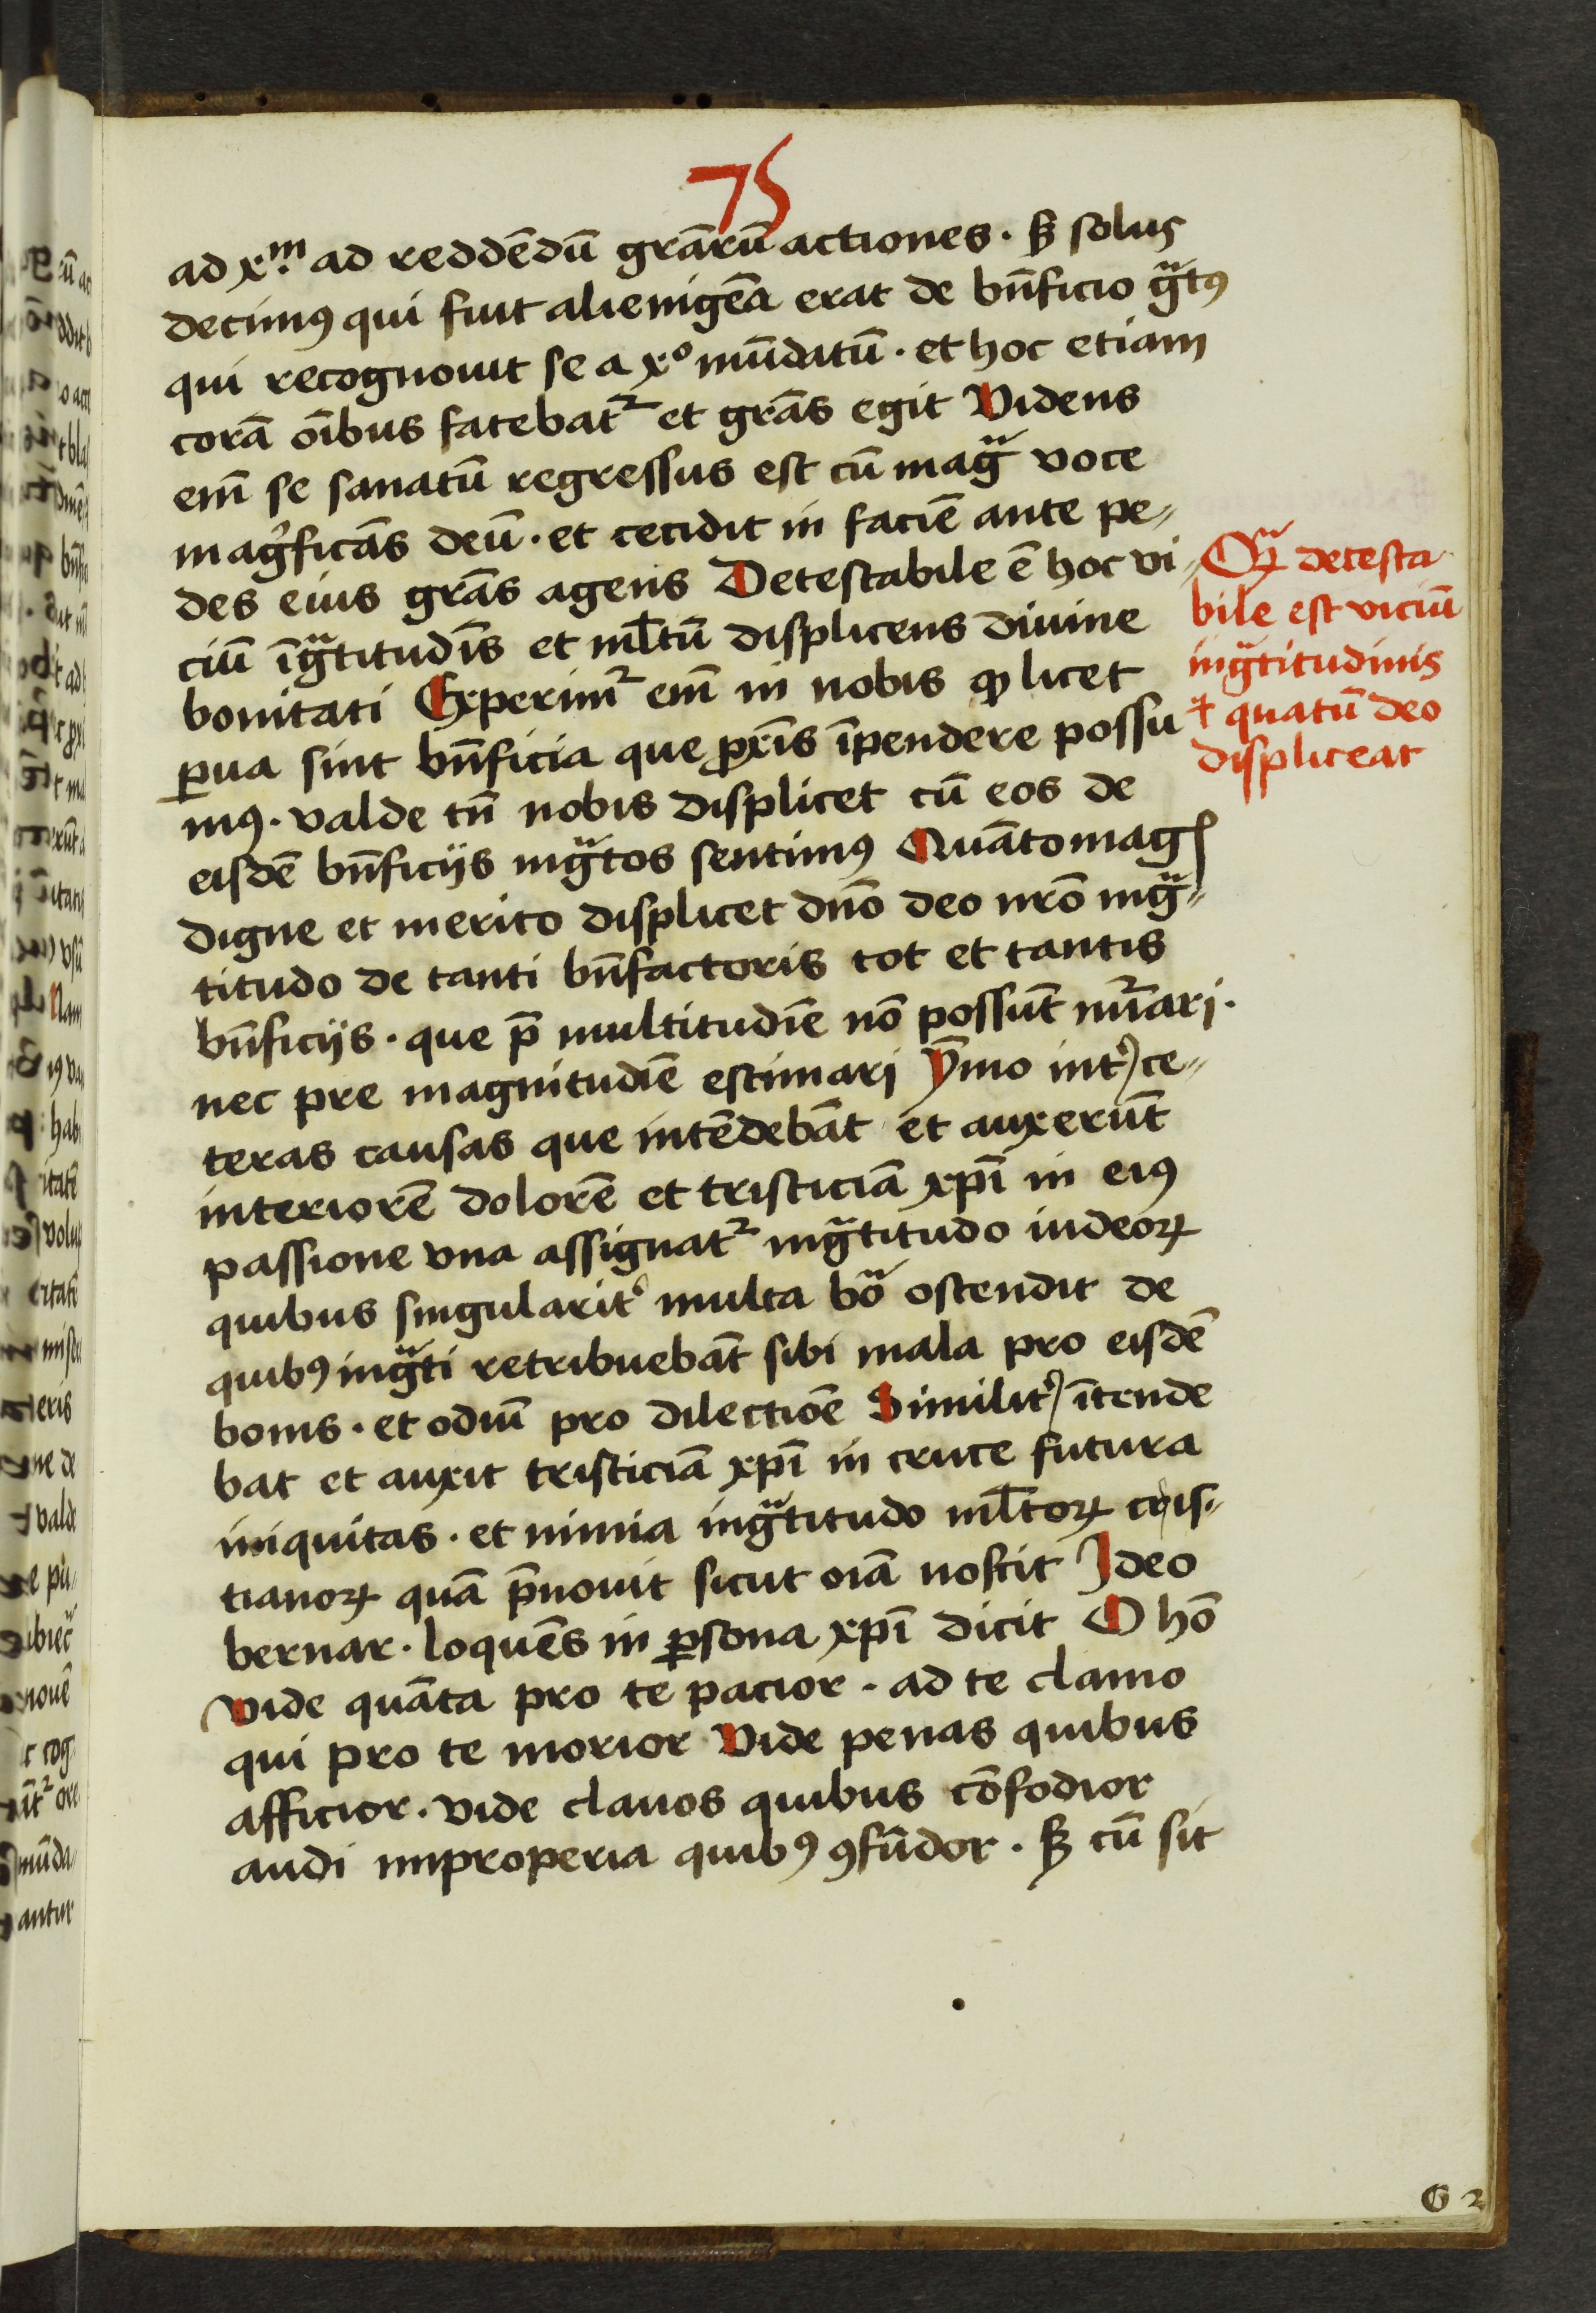 75
ad xm. ad reddēdū grārū actiones . sꝫ solus
decimꝰ qui fuit alienigēa erat de bn̄ficio gͣtꝰ
qui recognouit se a xº mūdatū . et hoc etiam
corā oībus fatebatᷣ et grās egit Videns
em̄ se sanatū regressus est cū magͣ voce
magͥficās deū . et cecidit in faciē ante pe⸗
des eius grās agens Detestabile ē hoc vi⸗
ciū īgͣtitudīs et ml̄tū displicens diuine
bonitati Experimᷣ em̄ in nobis ꝙ licet
ꝑua sint bn̄ficia que ꝓxīs īpendere possu
mꝰ . valde tn̄ nobis displicet cū eos de
eisdē bn̄ficijs ingͣtos sentimꝰ Quāto magꝭ
digne et merito displicet dn̄o deo nr̄o ingͣ⸗
titudo de tanti bn̄factoris tot et tantis
bn̄ficijs . que p̄ multitudīe nō possūt nūᷣari .
nec pre magnitudīe estimari ȳmo intꝰ ce⸗
teras causas que intēdebāt et auxerūt
interiorē dolorē et tristiciā xp̄i in eiꝰ
passione vna assignatᷣ ingͣtitudo iudeoꝝ
quibus singularitͥ multa boͣ ostendit de
quibꝰ ingͣti retribuebāt sibi mala pro eisdē
bonis . et odiū pro dilectiōe Similitꝰ ītende
bat et auxit tristiciā xp̄i in cruce futura
iniquitas . et nimia ingͣtitudo ml̄toꝝ cris⸗
tianoꝝ quā p̄nouit sicut oīa noscit Ideo
bernar . loquēs in ꝑsona xp̄i dicit O hō
Vide quāta pro te pacior . ad te clamo
qui pro te morior Vide penas quibus
afficior . vide clauos quibus cōfodior
audi improperia quibꝰ ꝯfūdor . sꝫ cū sit
Qͣꝫ detesta
bile est viciū
ingͣtitudinis
⁊ quatū deo
displiceat
G 2